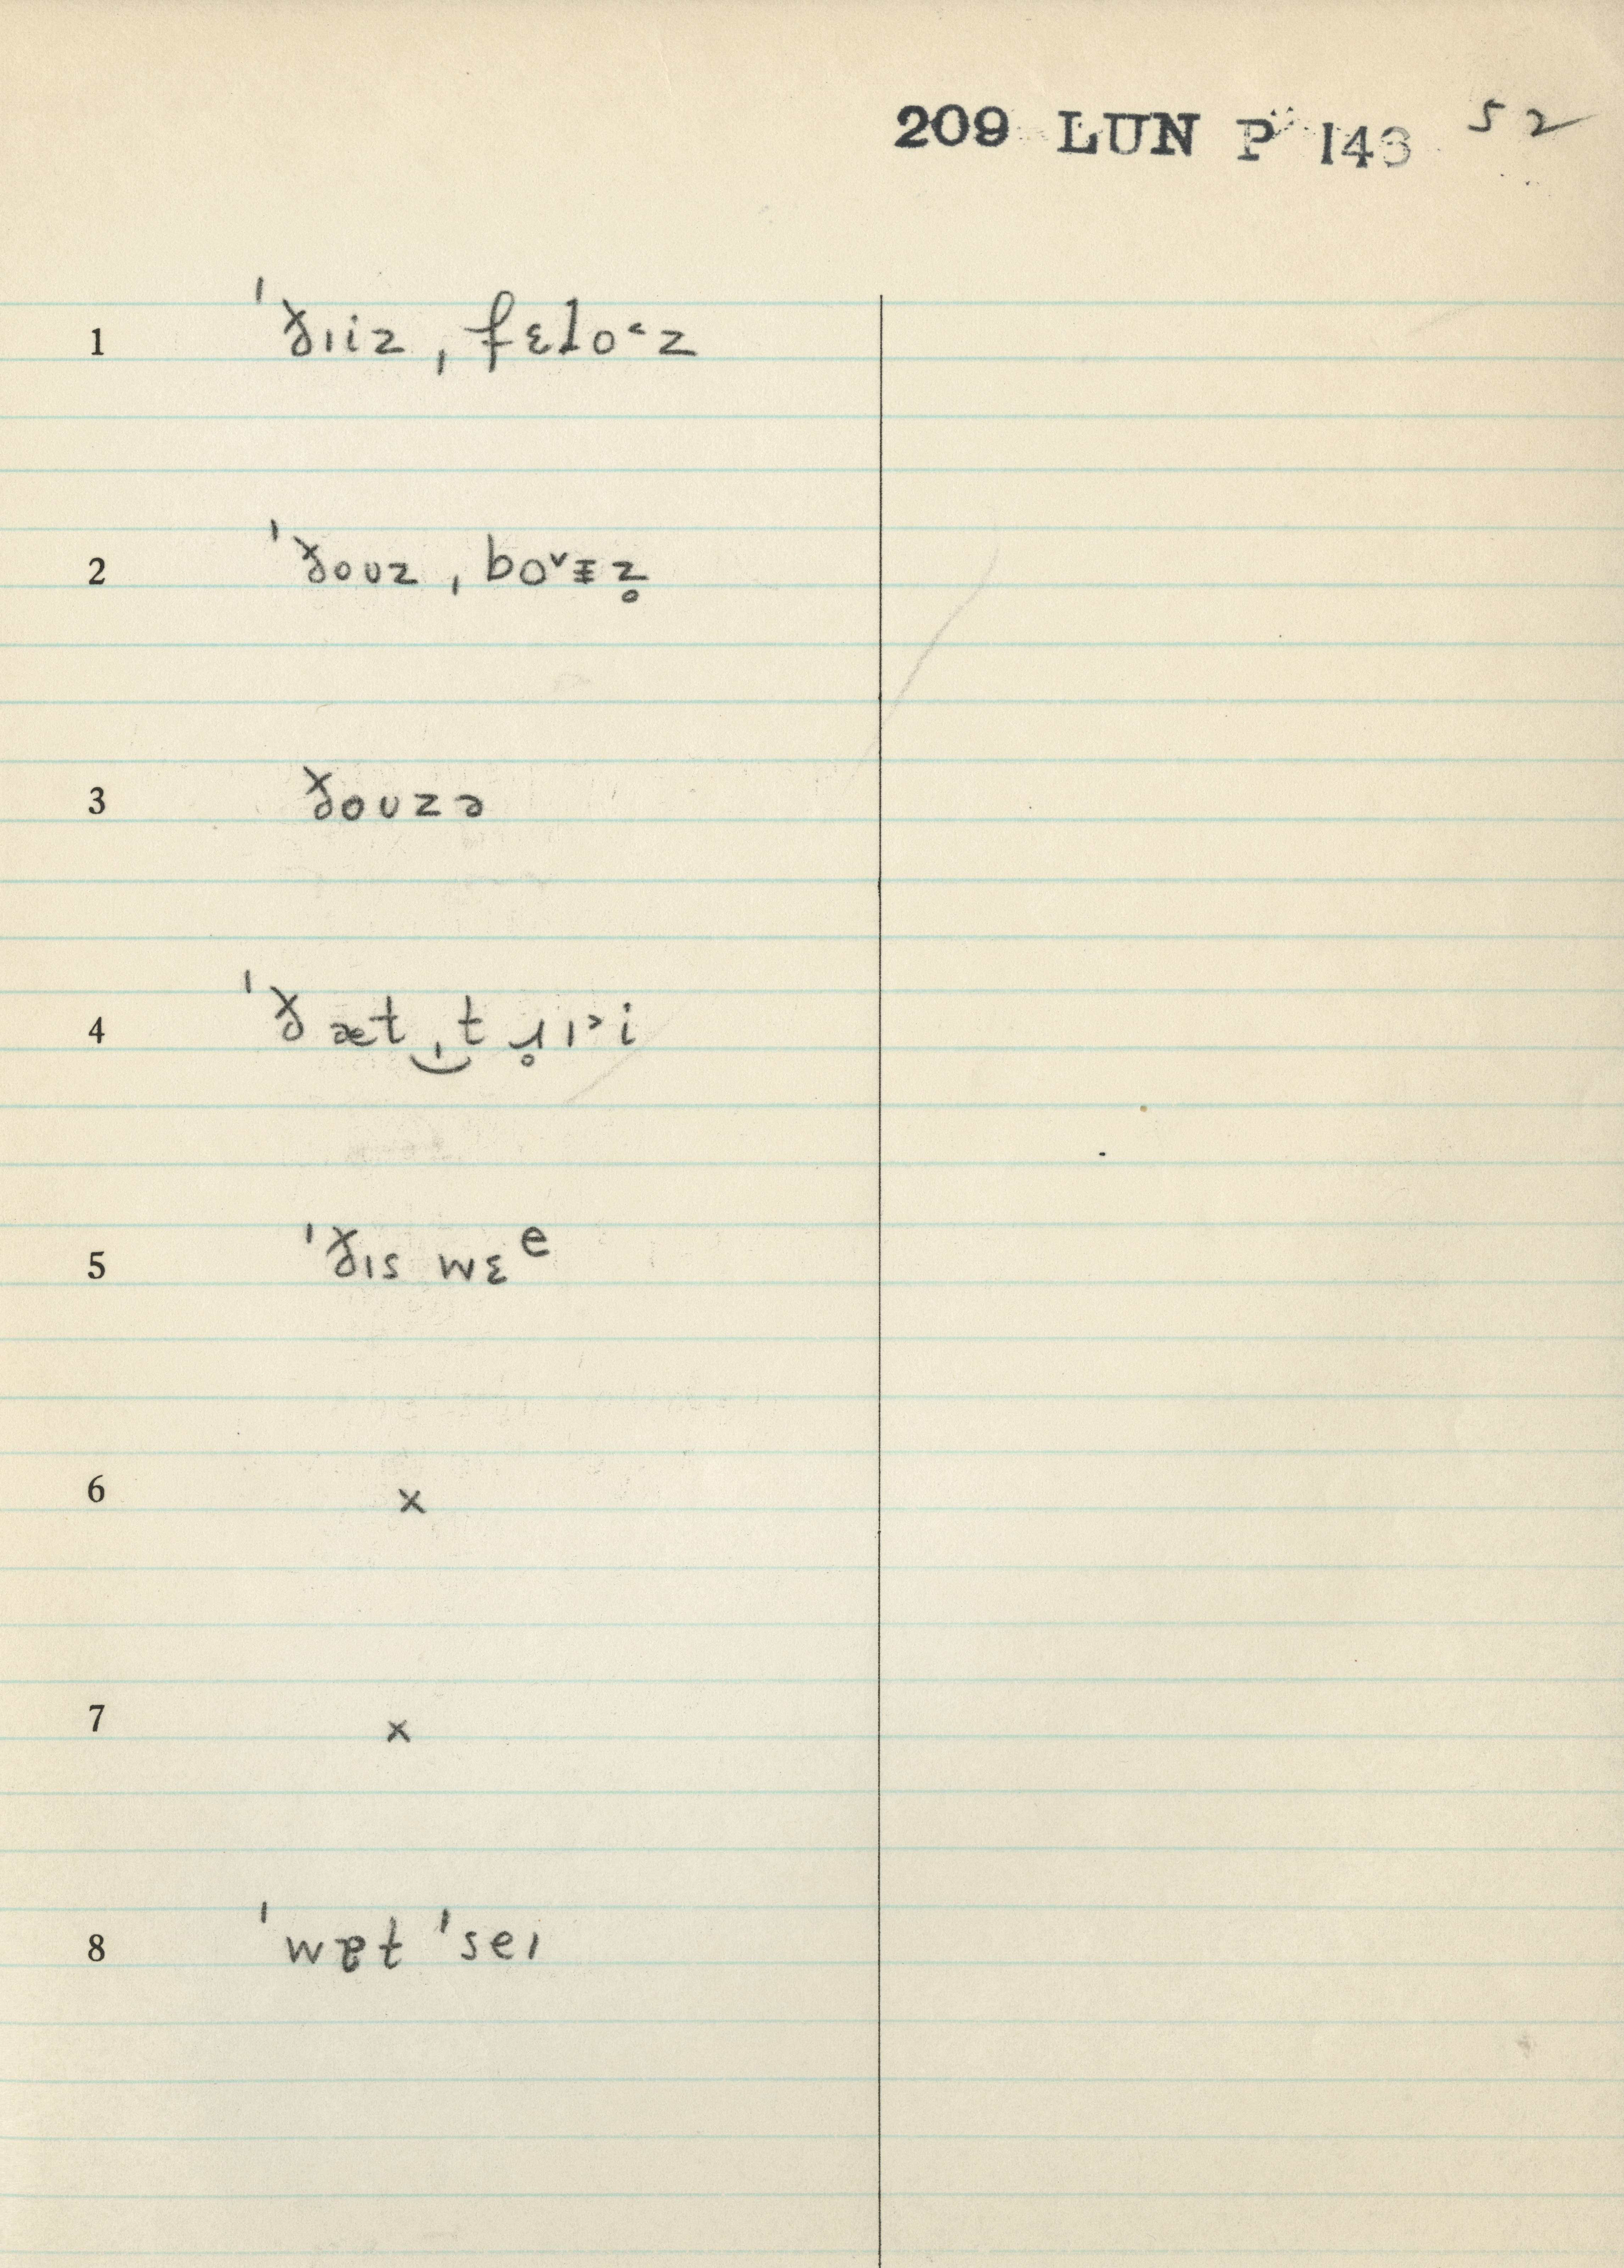 209 LUN P 143 52
1 ˈðɪiz ˌfɛlo˂z
2 ˈðoʊz ˌbo˅ɪz̥
3 ðoʊzə
4 ˈðæt‿ˌtɹ̥ɪ˃i
5 ˈðɪs wɛᵉ
6 x
7 x
8 ˈwɐt ˈseɪ